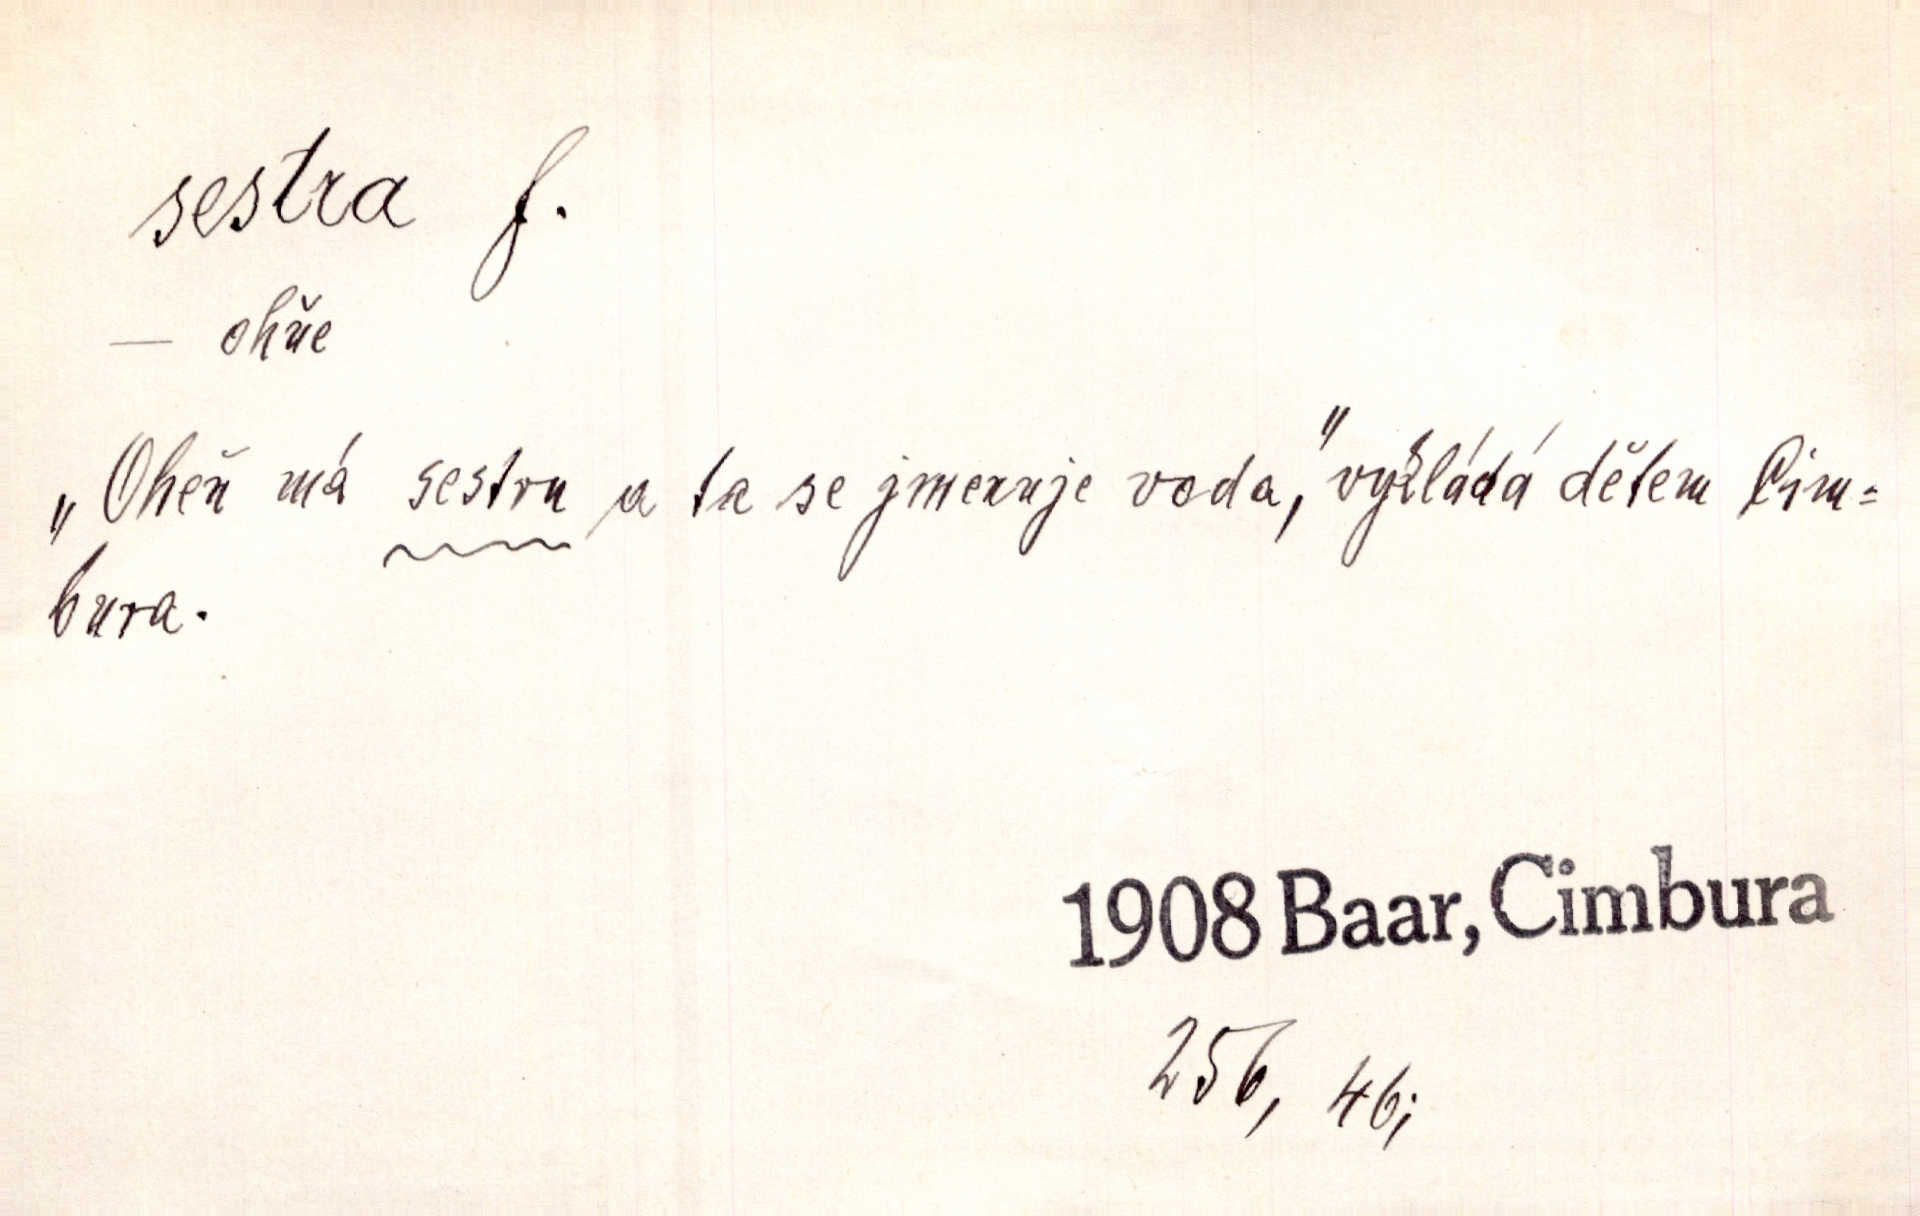 sestra f.
— ohňe
„Oheň má sestru a ta se jmenuje voda,” vykládá dětem Cim=
bura.
1908 Baar, Cimbura
256, 46;